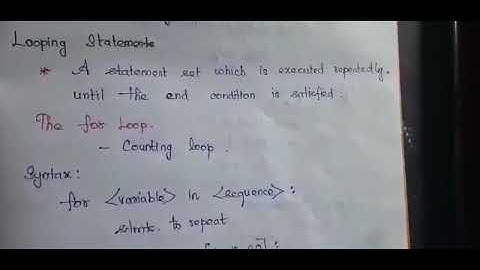 Looping Statements
* A statement set which is executed repeatedly.
until the end condition is satisfied.
The for Loop.
- Counting loop.
Syntax:
for <variable> in <sequence>:
stmts. to repeat